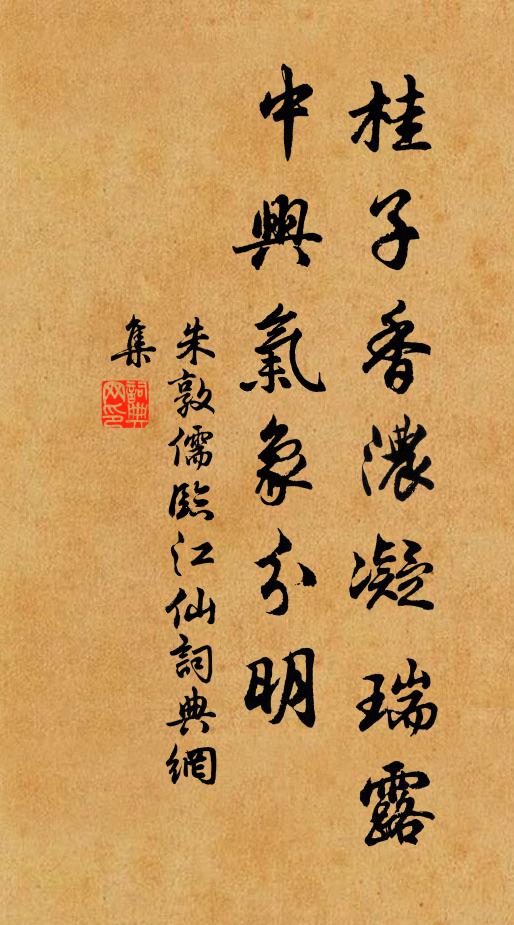 桂子香濃凝瑞露
中興氣象分明
朱敦儒臨江仙詞典網
集
詞典網印